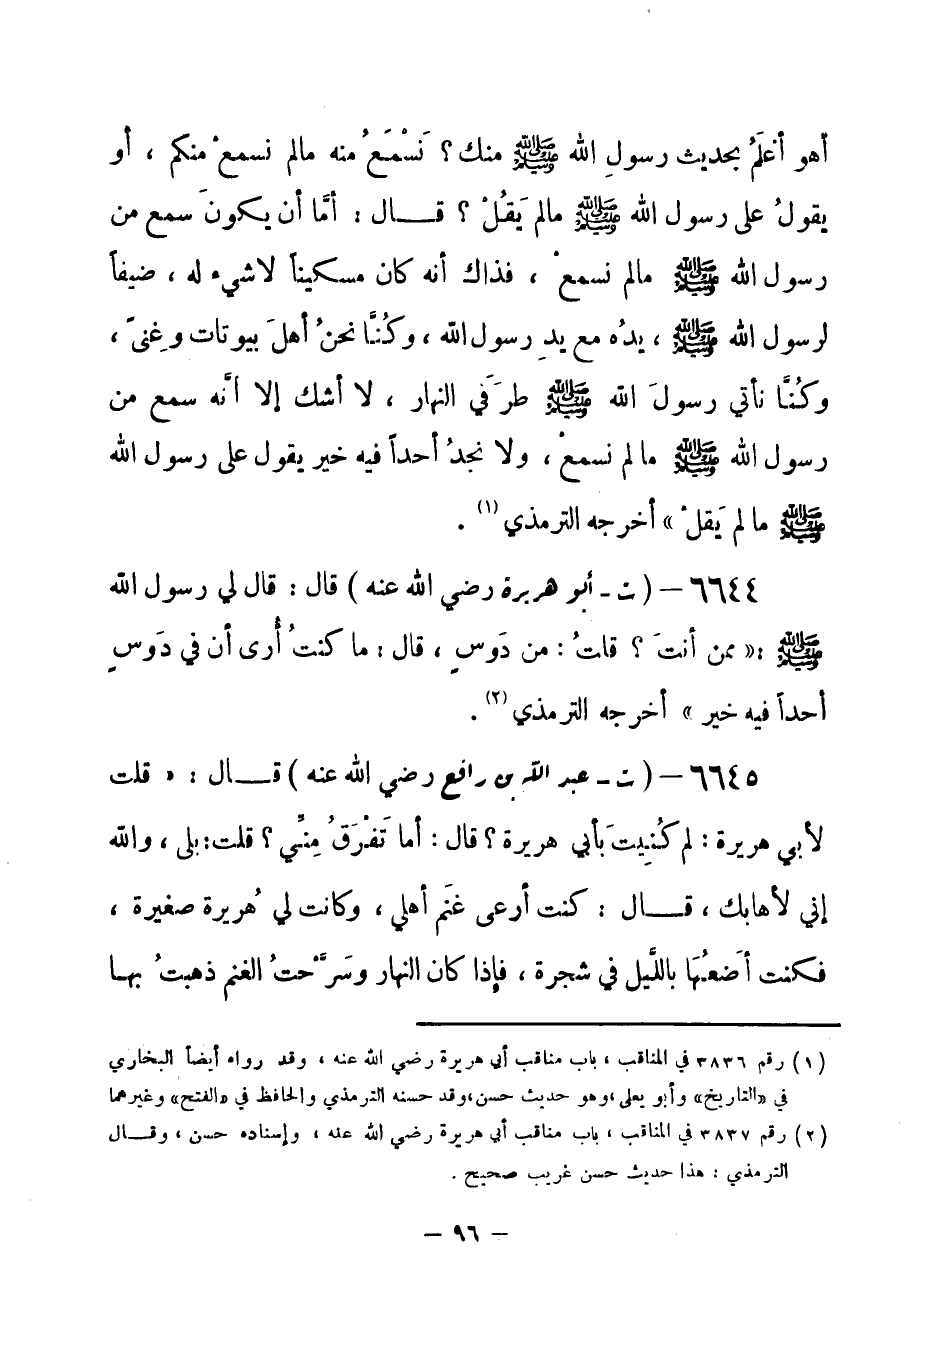 أهو أعْلَمُ بحديث رسولِ الله ﷺ منك ؟ نَسْمَعُ منه مالم نسمعْ منكم ، أو
يقولُ على رسول الله ﷺ مالم يَقُلْ ؟ قــال : أمَّا أن يكونَ سمع من
رسول الله ﷺ مالم نسمعْ ، فذاك أنه كان مسكيناً لاشيء له ، ضيفاً
لرسول الله ﷺ ، يدُه مع يدِ رسول الله ، وكُنَّا نحنُ أهلَ بيوتات وغِنىً ،
وكُنَّا نأتي رسولَ الله ﷺ طرَفَي النهار ، لا أشك إلا أنَّه سمع من
رسول الله ﷺ مالم نسمعْ ، ولا نجدُ أحداً فيه خير يقول على رسول الله
ﷺ مالم يَقلْ » أخرجه الترمذي (١) .
٦٦٤٤ – ( ت - أبو هريرة رضي الله عنه ) قال : قال لي رسول الله
ﷺ :« ممن أنتَ ؟ قلتُ : من دَوسٍ ، قال : ما كنتُ أُرى أن في دَوسٍ
أحداً فيه خير » أخرجه الترمذي (٢) .
٦٦٤٥ – ( ت - عبد الله بن رافع رضي الله عنه ) قــال : « قلت
لأبي هريرة : لم كُنِيتَ بأبي هريرة ؟ قال : أما تَفْرَقُ مِنِّي ؟ قلت : بلى ، والله
إني لأهابك ، قــال : كنت أرعى غنَم أهلي ، وكانت لي هُريرة صغيرة ،
فكنت أضعُهَا باللَّيل في شجرة ، فإذا كان النهار وسَرَّحتُ الغنم ذهبتُ بها
(١) رقم ٣٨٣٦ في المناقب ، باب مناقب أبي هريرة رضي الله عنه ، وقد رواه أيضاً البخاري
في «التاريخ» وأبو يعلى ،وهو حديث حسن،وقد حسنه الترمذي والحافظ في «الفتح» وغيرهما
(٢) رقم ٣٨٣٧ في المناقب ، باب مناقب أبي هريرة رضي الله عنه ، وإسناده حسن ، وقــال
الترمذي : هذا حديث حسن غريب صحيح .
– ٩٦ –